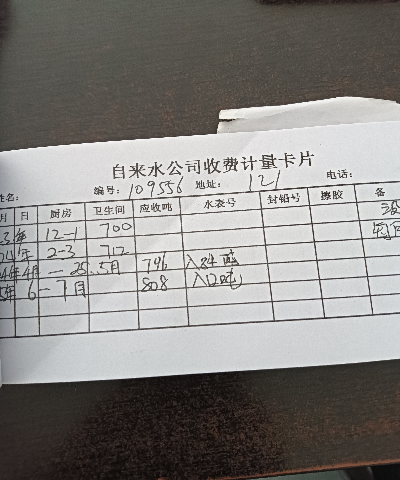 自来水公司收费计量卡片
姓名: 编号: 109556 地址: 121 电话:
月 日 厨房 卫生间 应收吨 水表号 封铅号 橡胶 备
3年 12-1 700
年 2-3 712
4年4月 — 25.5月 796 入84吨
5年 6 - 7月 808 入12吨